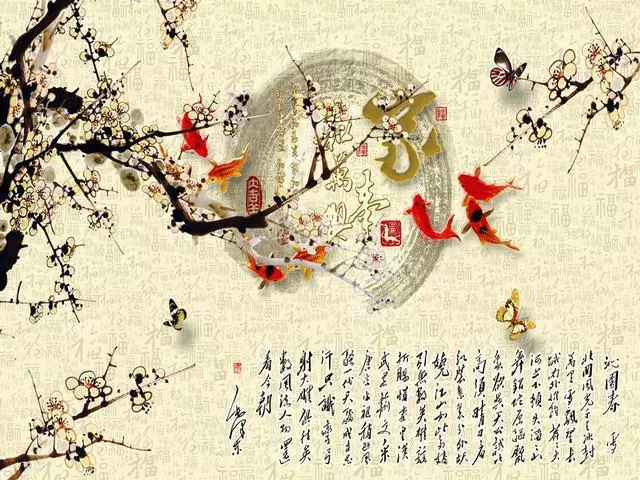 家和萬事興
沁園春 雪
北國風光千里冰封
萬里雪飄望長
城內外惟餘莽莽大
河上下頓失滔滔山
舞銀蛇原驅臘
象欲與天公試比
高須晴日看
紅裝素裹分外妖
嬈江山如此多嬌
引無數英雄競
折腰惜秦皇漢
武略輸文采
唐宗宋祖稍遜風
騷一代天驕成吉思
汗只識彎弓
射大雕俱往矣
數風流人物還
看今朝
毛澤東